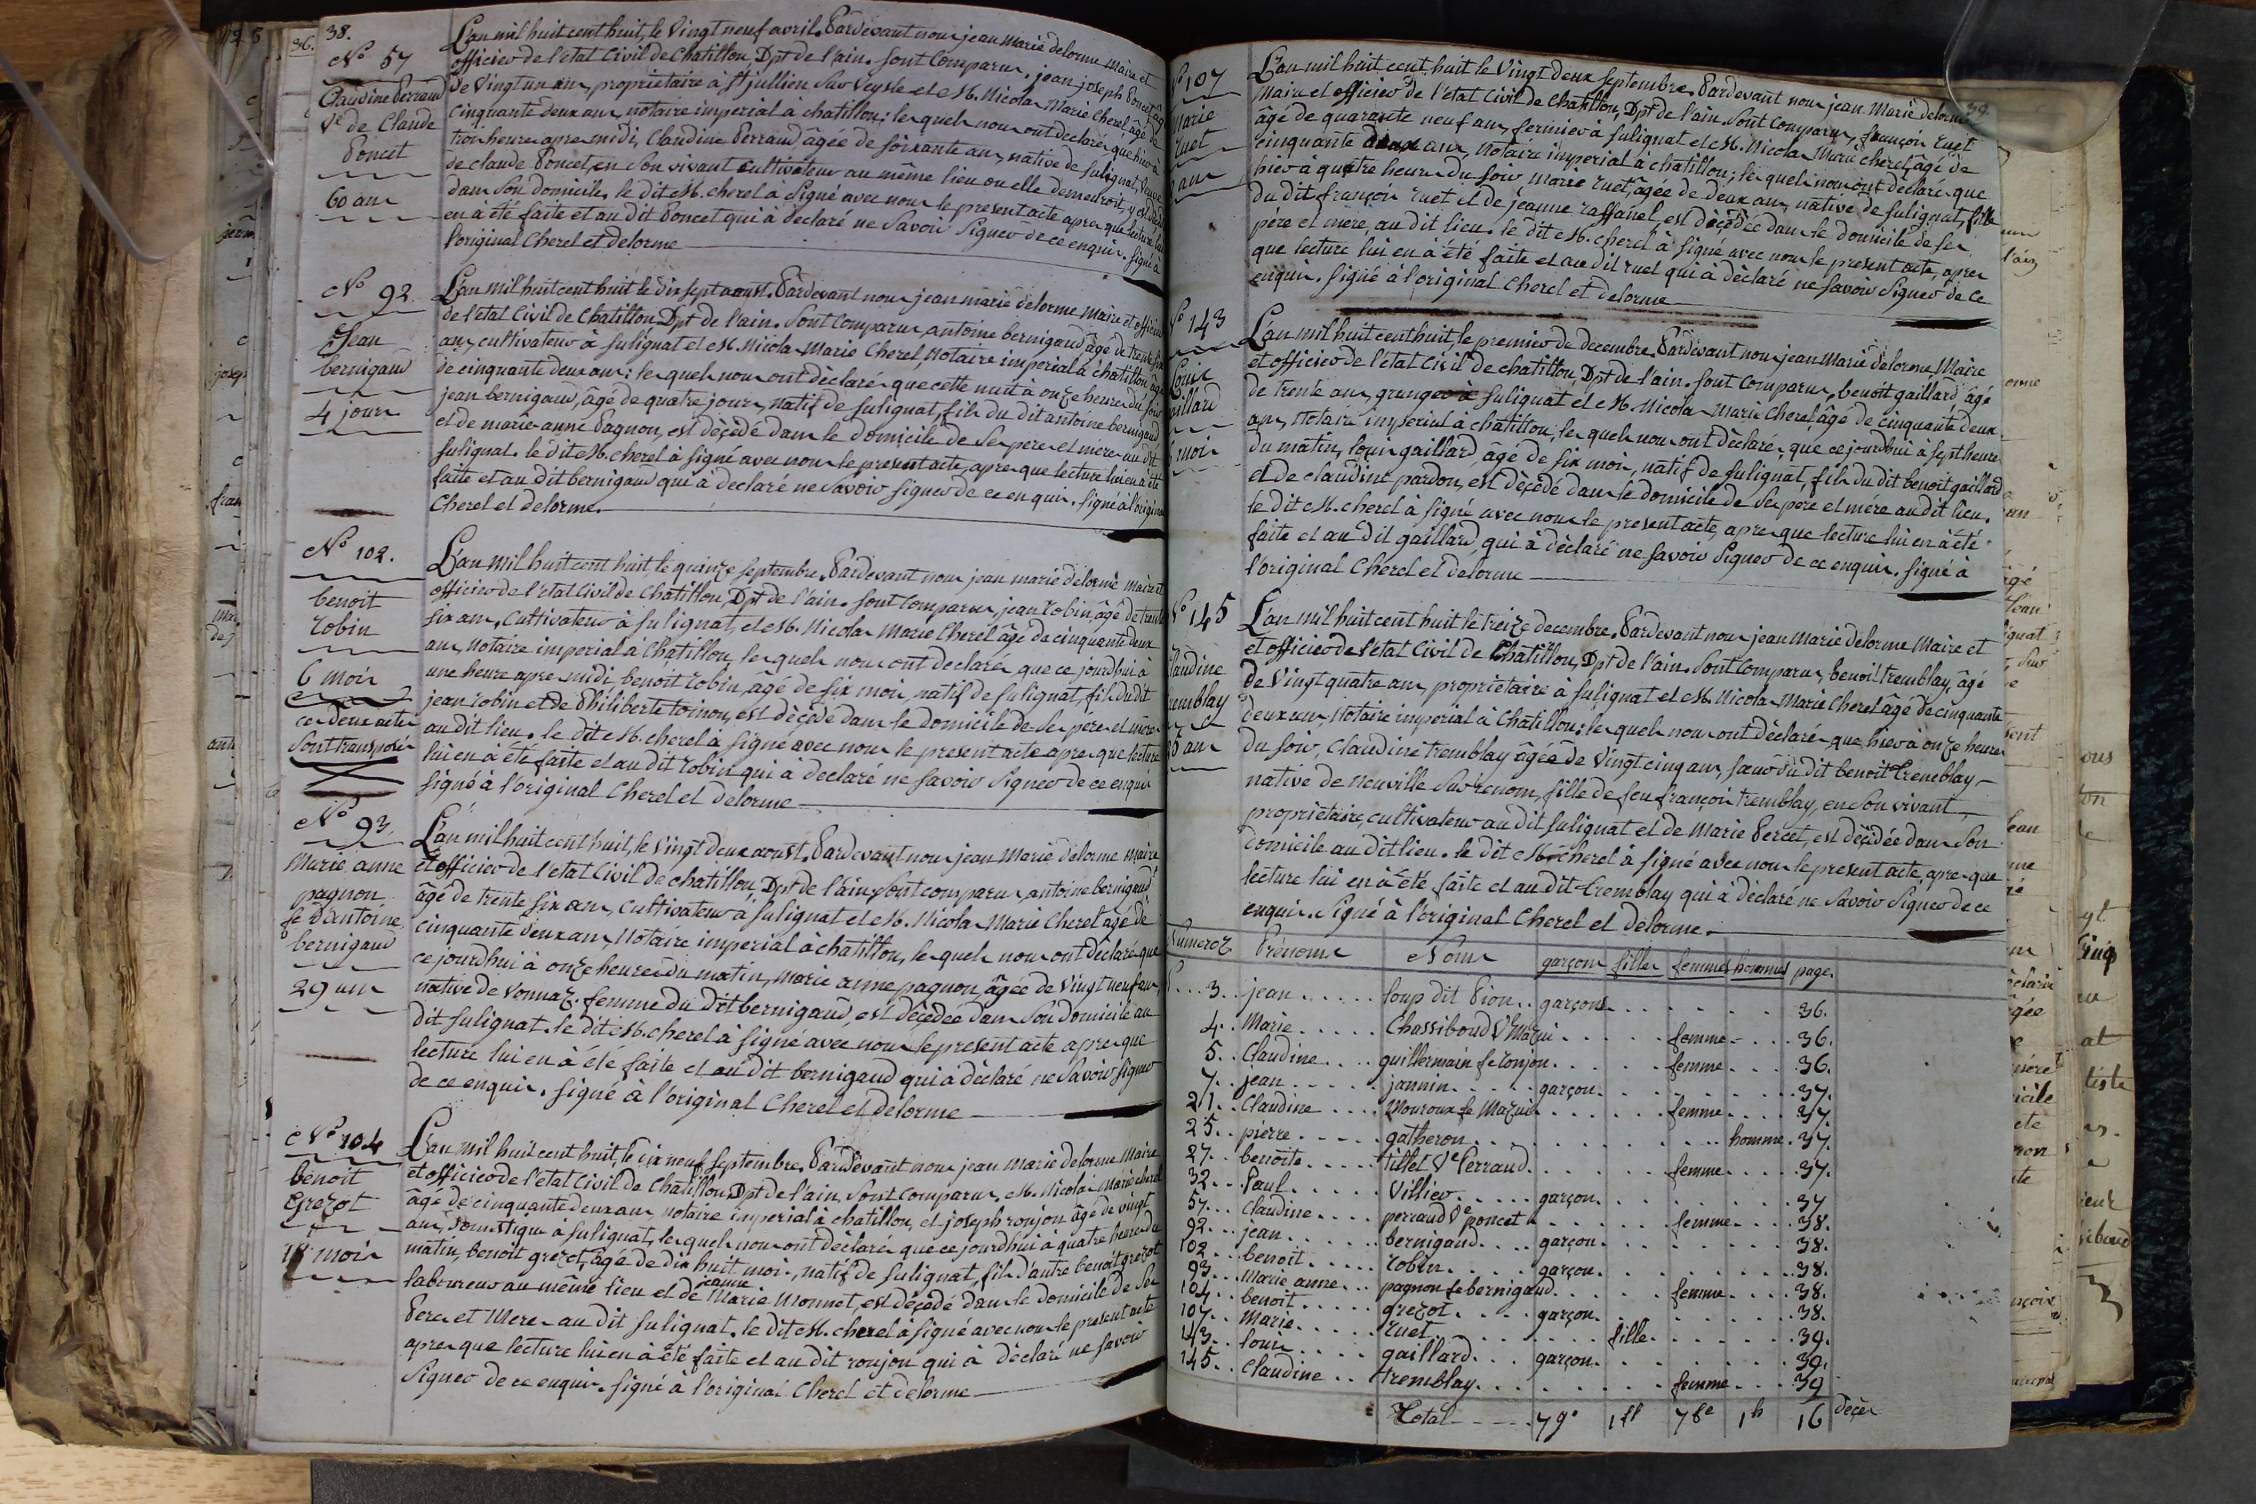 38.
No 57
Claudine Perraud
Ve de Claude
Poncet
60 ans
L'an mil huit cent huit, le Vingt neuf avril. Pardevant nous jean Marie delorme Maire et
officier de l'état Civil de Chatillon, Dpt de l'ain. Sont Comparus, jean joseph Poncet, âgé
de Vingt un ans, proprietaire à St jullien Sur Veysle et Me. Nicolas Marie Cherel, âgé de
Cinquante deux ans, notaire imperial à chatillon; lesquels nous ont declaré que hier à
trois heures apres midi, Claudine Perraud âgée de soixante ans, native de Sulignat, Veuve
de claude Poncet, en Son vivant Cultivateur au même lieu ou elle demeuroit, y est décédée
dans Son domicile, le dit Me. cherel a Signé avec nous le present acte apres que lecture lui
en à été faite et au dit Poncet qui à declaré ne Savoir Signer de ce enquis. Signé à
l'original Cherel et delorme
No 92
Jean
bernigaud
4 jours
L'an mil huit cent huit le dix sept aoust. Pardevant nous jean marie delorme Maire et officier
de l'état Civil de Chatillon, Dpt de l'ain. Sont Comparus, antoine bernigaud âgé de trente six
ans, cultivateur à Sulignat et Me. Nicolas Marie Cherel, Notaire imperial à Chatillon, âgé
de cinquante deux ans; lesquels nous ont déclaré que cette nuit à onze heures du soir
jean bernigaud, âgé de quatre jours, natif de Sulignat, fils du dit antoine bernigaud
et de marie anne Pagnon, est décédé dans le domicile de Ses pere et mére au dit
Sulignat. le dit Me. cherel à signé avec nous le present acte, apres que lecture lui en à été
faite et au dit bernigaud qui à declaré ne Savoir Signer de ce enquis. Signé à l'original
Cherel et delorme.
No 102.
benoit
robin
6 mois
ces deux actes
Sont transposés
L'an Mil huit cent huit, le quinze Septembre. Pardevant nous jean marie delorme maire et
officier de l'état Civil de Chatillon, Dpt de l'ain. Sont Comparus, jean robin, âgé de trente
six ans, Cultivateur à Sulignat, et Me. Nicolas Marie Cherel âgé de cinquante deux
ans, notaire imperial à Chatillon, lesquels nous ont declaré que ce jourdhui à
une heure apres midi, benoit robin, âgé de six mois, natif de Sulignat, fils du dit
jean robin et de Philiberte toinon, est décédé dans le domicile de Ses pere et mére
au dit lieu. le dit Me. cherel à signé avec nous le present acte apres que lecture
lui en à été faite et au dit robin qui à declaré ne Savoir Signer de ce enquis
Signé à l'original Cherel et delorme
No 93
Marie anne
pagnon
fe d'antoine
bernigaud
29 ans
L'an mil huit cent huit, le Vingt deux aoust. Pardevant nous jean Marie delorme maire
et officier de l'état Civil de chatillon, Dpt de l'ain, Sont comparus antoine bernigaud
âgé de trente six ans, cultivateur à Sulignat et Me. Nicolas Marie Cherel âgé de
cinquante deux ans, Notaire imperial à chatillon, lesquels nous ont déclaré que
ce jourdhui à onze heures du matin, marie anne pagnon, âgée de Vingt neuf ans,
native de Vonnaz, femme du dit bernigaud, est décédée dans Son domicile au
dit Sulignat. le dit Me. cherel à signé avec nous le present acte apres que
lecture lui en à été faite et au dit bernigaud qui à déclaré ne Savoir Signer
de ce enquis. Signé à l'original Cherel et delorme
No 104
benoit
Grezot
18 mois
L'an mil huit cent huit, le dix neuf Septembre. Pardevant nous jean marie delorme Maire
et officier de l'état Civil de Chatillon, Dpt de l'ain, Sont Comparus, Me. Nicolas Marie cherel
âgé de cinquante deux ans, notaire imperial à chatillon, et joseph ronjon âgé de vingt
ans, Domestique à Sulignat, lesquels nous ont déclaré que ce jourdhui à quatre heures du
matin, benoit grezot, âgé de dix huit mois, natif de Sulignat, fils d'autre benoit grezot
laboureur au même lieu et de Marie jeanne Monnet, est décédé dans le domicile de Ses
Pere et Mere au dit Sulignat. le dit Me. cherel à signé avec nous le present acte
apres que lecture lui en à été faite et au dit ronjon qui à déclaré ne savoir
Signer de ce enquis. Signé à l'original Cherel et delorme
39.
No 107
Marie
ruet
2 ans
L'an mil huit cent huit le Vingt deux Septembre. Pardevant nous jean Marie delorme
Maire et officier de l'état Civil de Chatillon, Dpt de l'ain. Sont Comparus, françois ruet
âgé de quarante neuf ans, fermier à Sulignat et Me. Nicolas Marie cherel, âgé de
cinquante deux ans, Notaire imperial à chatillon; lesquels nous ont déclaré que
hier à quatre heures du soir marie ruet, âgée de deux ans, native de Sulignat, fille
du dit françois ruet et de jeanne raffanel, est décédée dans le domicile de ses
père et mère, au dit lieu. le dit Me. cherel à signé avec nous le present acte, apres
que lecture lui en à été faite et au dit ruet qui à déclaré ne savoir Signer de ce
enquis. Signé à l'original Cherel et delorme
No 143
Louis
gaillard
6 mois
L'an mil huit cent huit, le premier de decembre. Pardevant nous jean Marie delorme Maire
et officier de l'état Civil de chatillon, Dpt de l'ain. Sont Comparus, benoit gaillard, âgé
de trente ans, granger à Sulignat et Me. Nicolas Marie Cherel âgé de cinquante deux
ans, Notaire imperial à chatillon; lesquels nous ont déclaré, que ce jourdhui à sept heures
du matin, louis gaillard, âgé de six mois, natif de Sulignat, fils du dit benoit gaillard
et de claudine pardon, est décédé dans le domicile de Ses pére et mére au dit lieu.
le dit Me. cherel à signé avec nous le present acte, apres que lecture lui en à été
faite et au dit gaillard, qui à déclaré ne savoir Signer de ce enquis. Signé à
l'original Cherel et delorme
No 145
Claudine
tremblay
25 ans
L'an mil huit cent huit le treize decembre. Pardevant nous jean marie delorme Maire et
et officier de l'état Civil de Chatillon, Dpt de l'ain. Sont Comparus, benoit tremblay, âgé
de Vingt quatre ans, proprietaire à Sulignat et Me. Nicolas Marie Cherel âgé de cinquante
deux ans, Notaire imperial à Chatillon; lesquels nous ont déclaré que hier à onze heures
du soir, Claudine tremblay âgée de Vingt cinq ans, soeur du dit benoit tremblay
native de neuville Sur renom, fille de feu françois tremblay, en Son vivant,
propriétaire, cultivateur au dit Sulignat et de Marie Percet, est décédée dans Son
domicile au dit lieu. le dit Me. cherel à signé avec nous le present acte, apres que
lecture lui en à été faite et au dit tremblay qui à déclaré ne Savoir Signer de ce
enquis. Signé à l'original Cherel et delorme.
Numeroz Prénoms Noms garçons filles femmes hommes page.
3. jean loup dit Pion garçons 36.
4. Marie Chassiboud Ve Mazui femme 36.
5. Claudine guillermain fe ronjon femme 36.
7. jean jannin garçon 37.
21. Claudine Mouroux fe Mazui femme 37.
25. pierre gatheron homme 37.
27. benoite tillet Ve Perraud femme 37.
32. Paul Villier garçon 37
57. Claudine perraud Ve poncet femme 38.
92. jean bernigaud garçon 38.
102. benoit robin garçon 38.
93. Marie anne pagnon fe bernigaud femme 38.
104. benoit grezot garçon 38.
107. Marie ruet fille 39.
143. louis gaillard garçon 39.
145. Claudine tremblay femme 39
Total 7 g. 1 fl 7 fe 1 h 16 décès